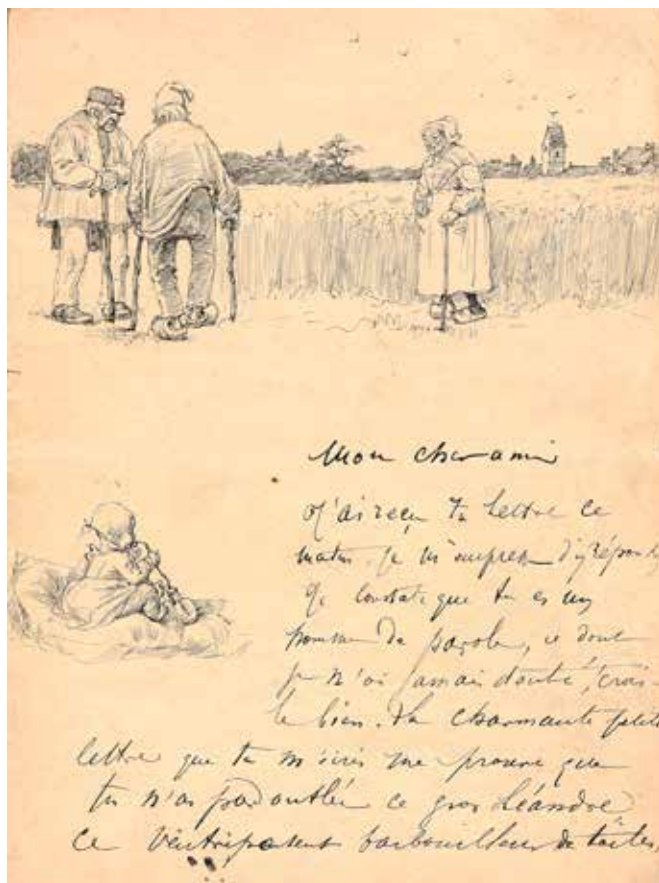 Mon cher ami
J'ai reçu ta lettre ce
matin. je m'empresse d'y répondre
Je constate que tu es un
homme de parole, ce dont
je n'ai jamais douté, crois-
le bien. La charmante petite
lettre que tu m'écris me prouve que
tu n'as pas oublié ce gros Léandre
ce ventripotent barbouilleur de toiles,